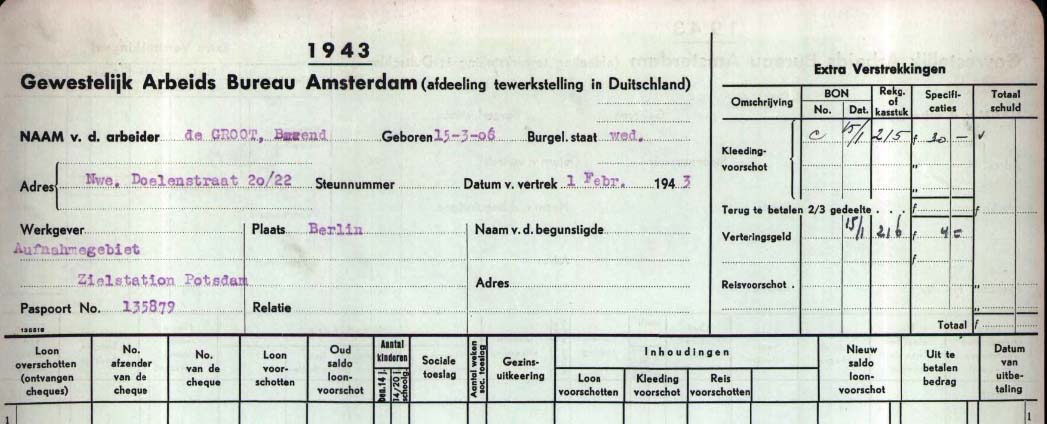 1943
Gewestelijk Arbeids Bureau Amsterdam (afdeeling tewerkstelling in Duitschland)
NAAM v. d. arbeider de GROOT, Barend Geboren 15-3-06 Burgel. staat wed.
Adres Nwe. Doelenstraat 20/22 Steunnummer Datum v. vertrek 1 Febr. 1943
Werkgever Plaats Berlin Naam v. d. begunstigde
Aufnahmegebiet
Zielstation Potsdam Adres
Paspoort No. 135879 Relatie
Extra Verstrekkingen
Omschrijving BON No. Dat. Rekg. of kasstuk Specifi-caties Totaal schuld
Kleeding-voorschot C 15/1 215 f 30 –
"
"
Terug te betalen 2/3 gedeelte . . . f f
Verteringsgeld 15/1 216 f 4 =
f
Reisvoorschot . " "
Totaal f
Loon overschotten (ontvangen cheques) No. afzender van de cheque No. van de cheque Loon voor-schotten Oud saldo loon-voorschot Aantal kinderen Ben. 14 j. 14/20 j. schoolg. Sociale toeslag Aantal weken soc. toeslag Gezins-uitkeering Inhoudingen Loon voorschotten Kleeding voorschot Reis voorschotten Nieuw saldo loon-voorschot Uit te betalen bedrag Datum van uitbe-taling
1 1